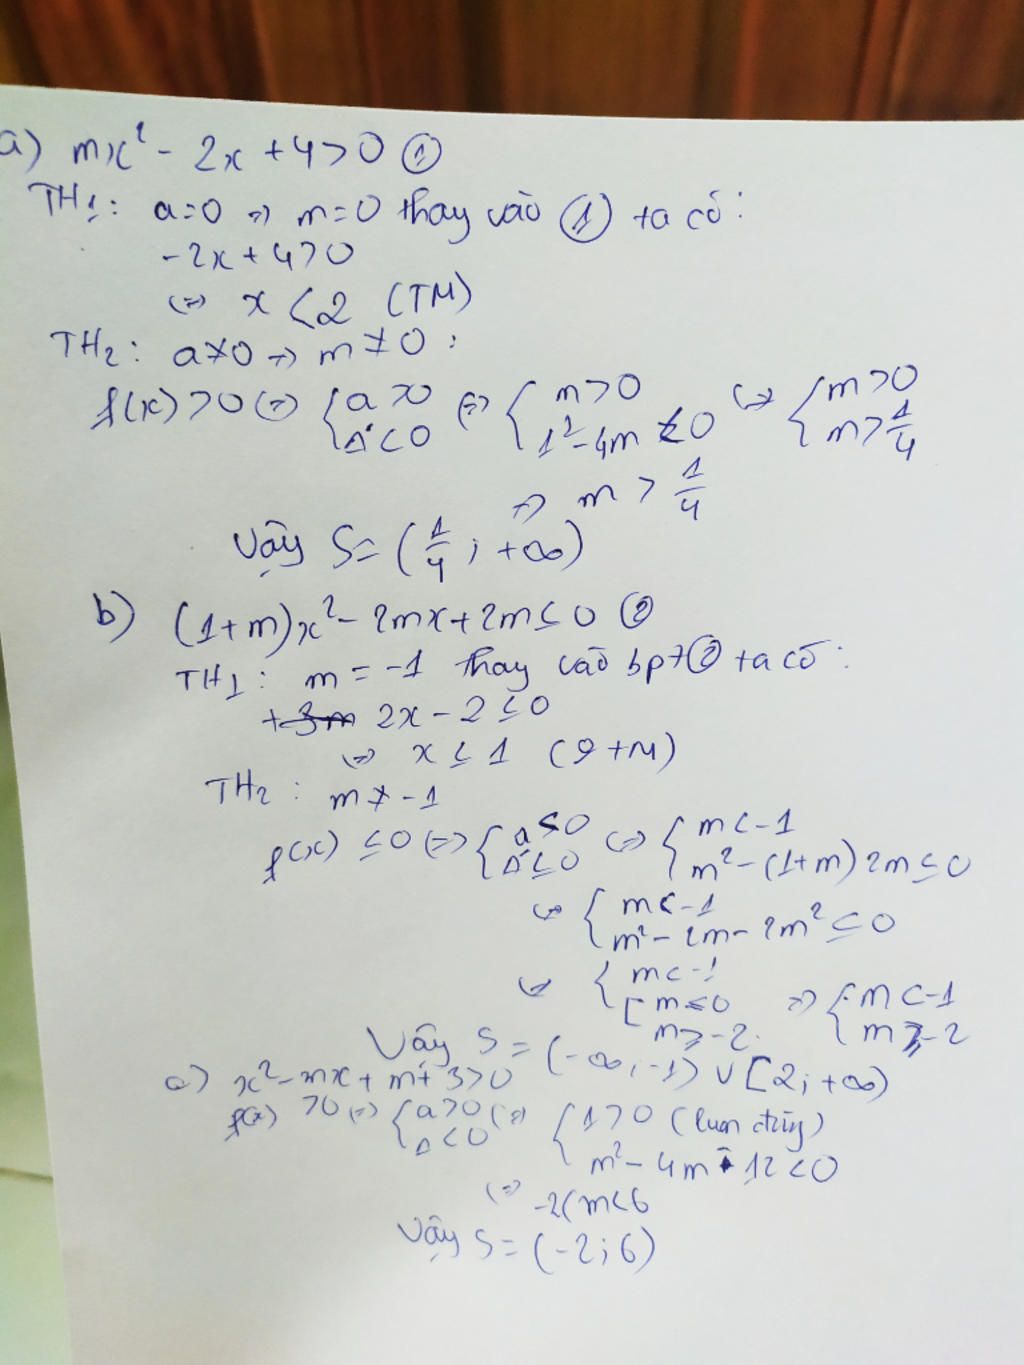 a) mx² - 2x + 4 > 0 ①
TH1: a=0 => m=0 thay vào ① ta có:
-2x + 4 > 0
<=> x < 2 (TM)
TH2: a≠0 => m≠0:
f(x) > 0 <=> { a > 0 ; Δ' < 0 <=> { m > 0 ; 1² - 4m < 0 <=> { m > 0 ; m > 1/4
=> m > 1/4
Vậy S = (1/4; +∞)
b) (1+m)x² - 2mx + 2m ≤ 0 ②
TH1: m = -1 thay vào bpt ② ta có:
2x - 2 ≤ 0
<=> x ≤ 1 (TM)
TH2: m ≠ -1
f(x) ≤ 0 <=> { a < 0 ; Δ' ≤ 0 <=> { m < -1 ; m² - (1+m)2m ≤ 0
<=> { m < -1 ; m² - 2m - 2m² ≤ 0
<=> { m < -1 ; [ m ≤ 0 ; m ≥ -2 => { m < -1 ; m ≥ -2
Vậy S = (-∞; -1) ∪ [2; +∞)
c) x² - mx + m + 3 > 0
f(x) > 0 <=> { a > 0 ; Δ < 0 <=> { 1 > 0 (luôn đúng) ; m² - 4m - 12 < 0
<=> -2 < m < 6
Vậy S = (-2; 6)